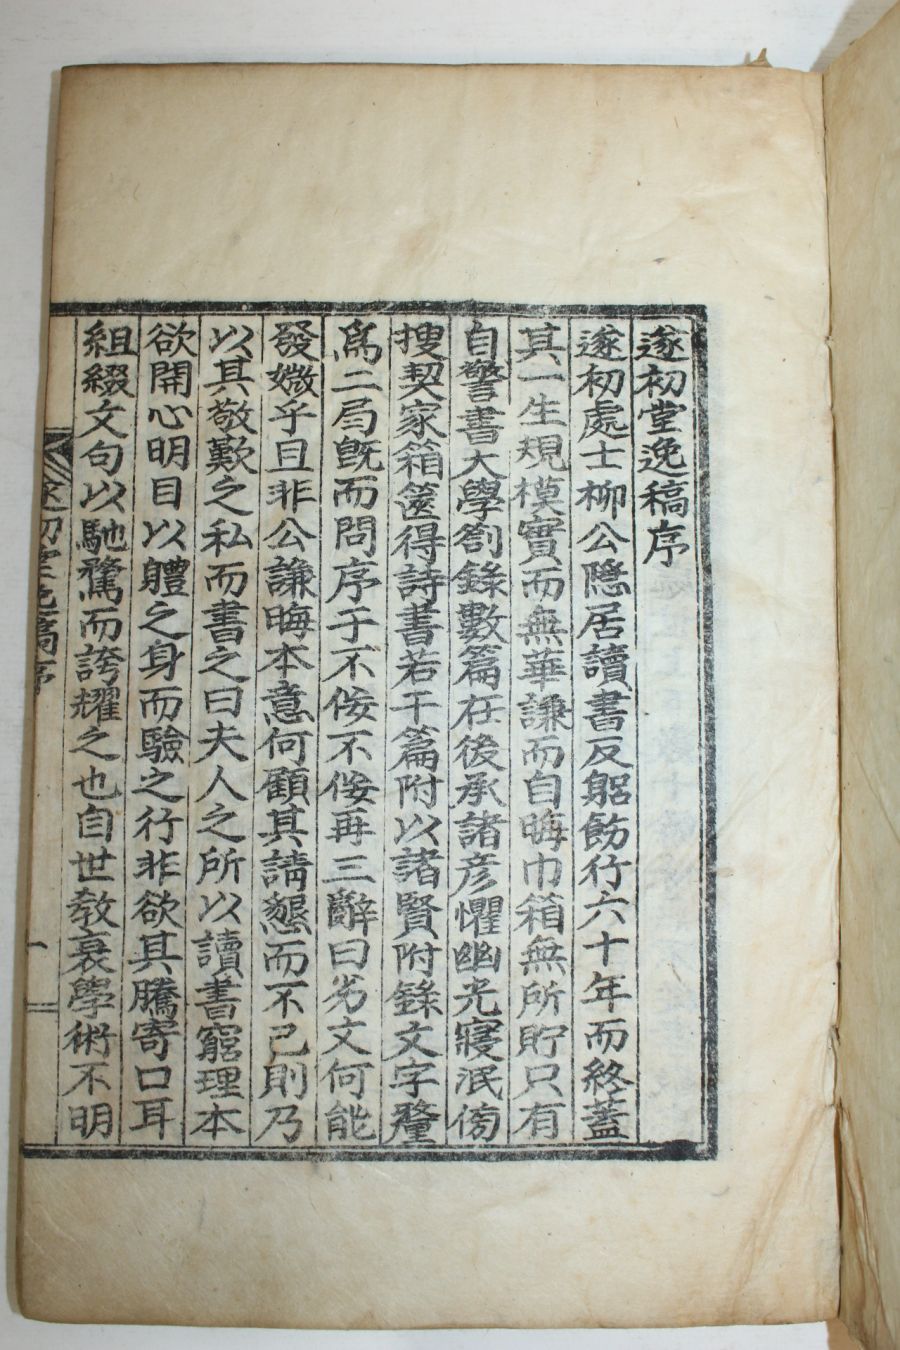 遂初堂逸稿序
遂初處士柳公隱居讀書反躬飭行六十年而終蓋
其一生規模實而無華謙而自晦巾箱無所貯只有
自警書大學劄錄數篇在後承諸彦懼幽光寢泯傍
搜契家箱篋得詩書若干篇附以諸賢附錄文字釐
爲二局旣而問序于不侫不侫再三辭曰劣文何能
發媺乎且非公謙晦本意何顧其請懇而不已則乃
以其敬歎之私而書之曰夫人之所以讀書窮理本
欲開心明目以軆之身而驗之行非欲其騰寄口耳
組綴文句以馳騖而誇耀之也自世敎衰學術不明
遂初堂逸稿序
一